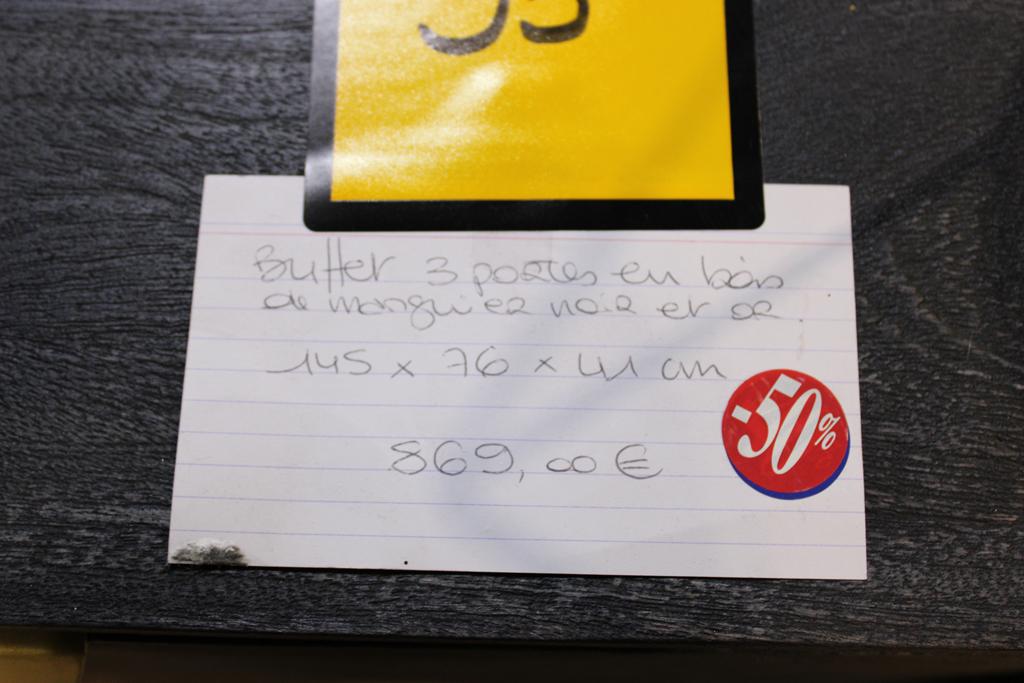 Buffet 3 portes en bois
de manguier noir et or.
145 x 76 x 41 cm
-50%
869,00 €